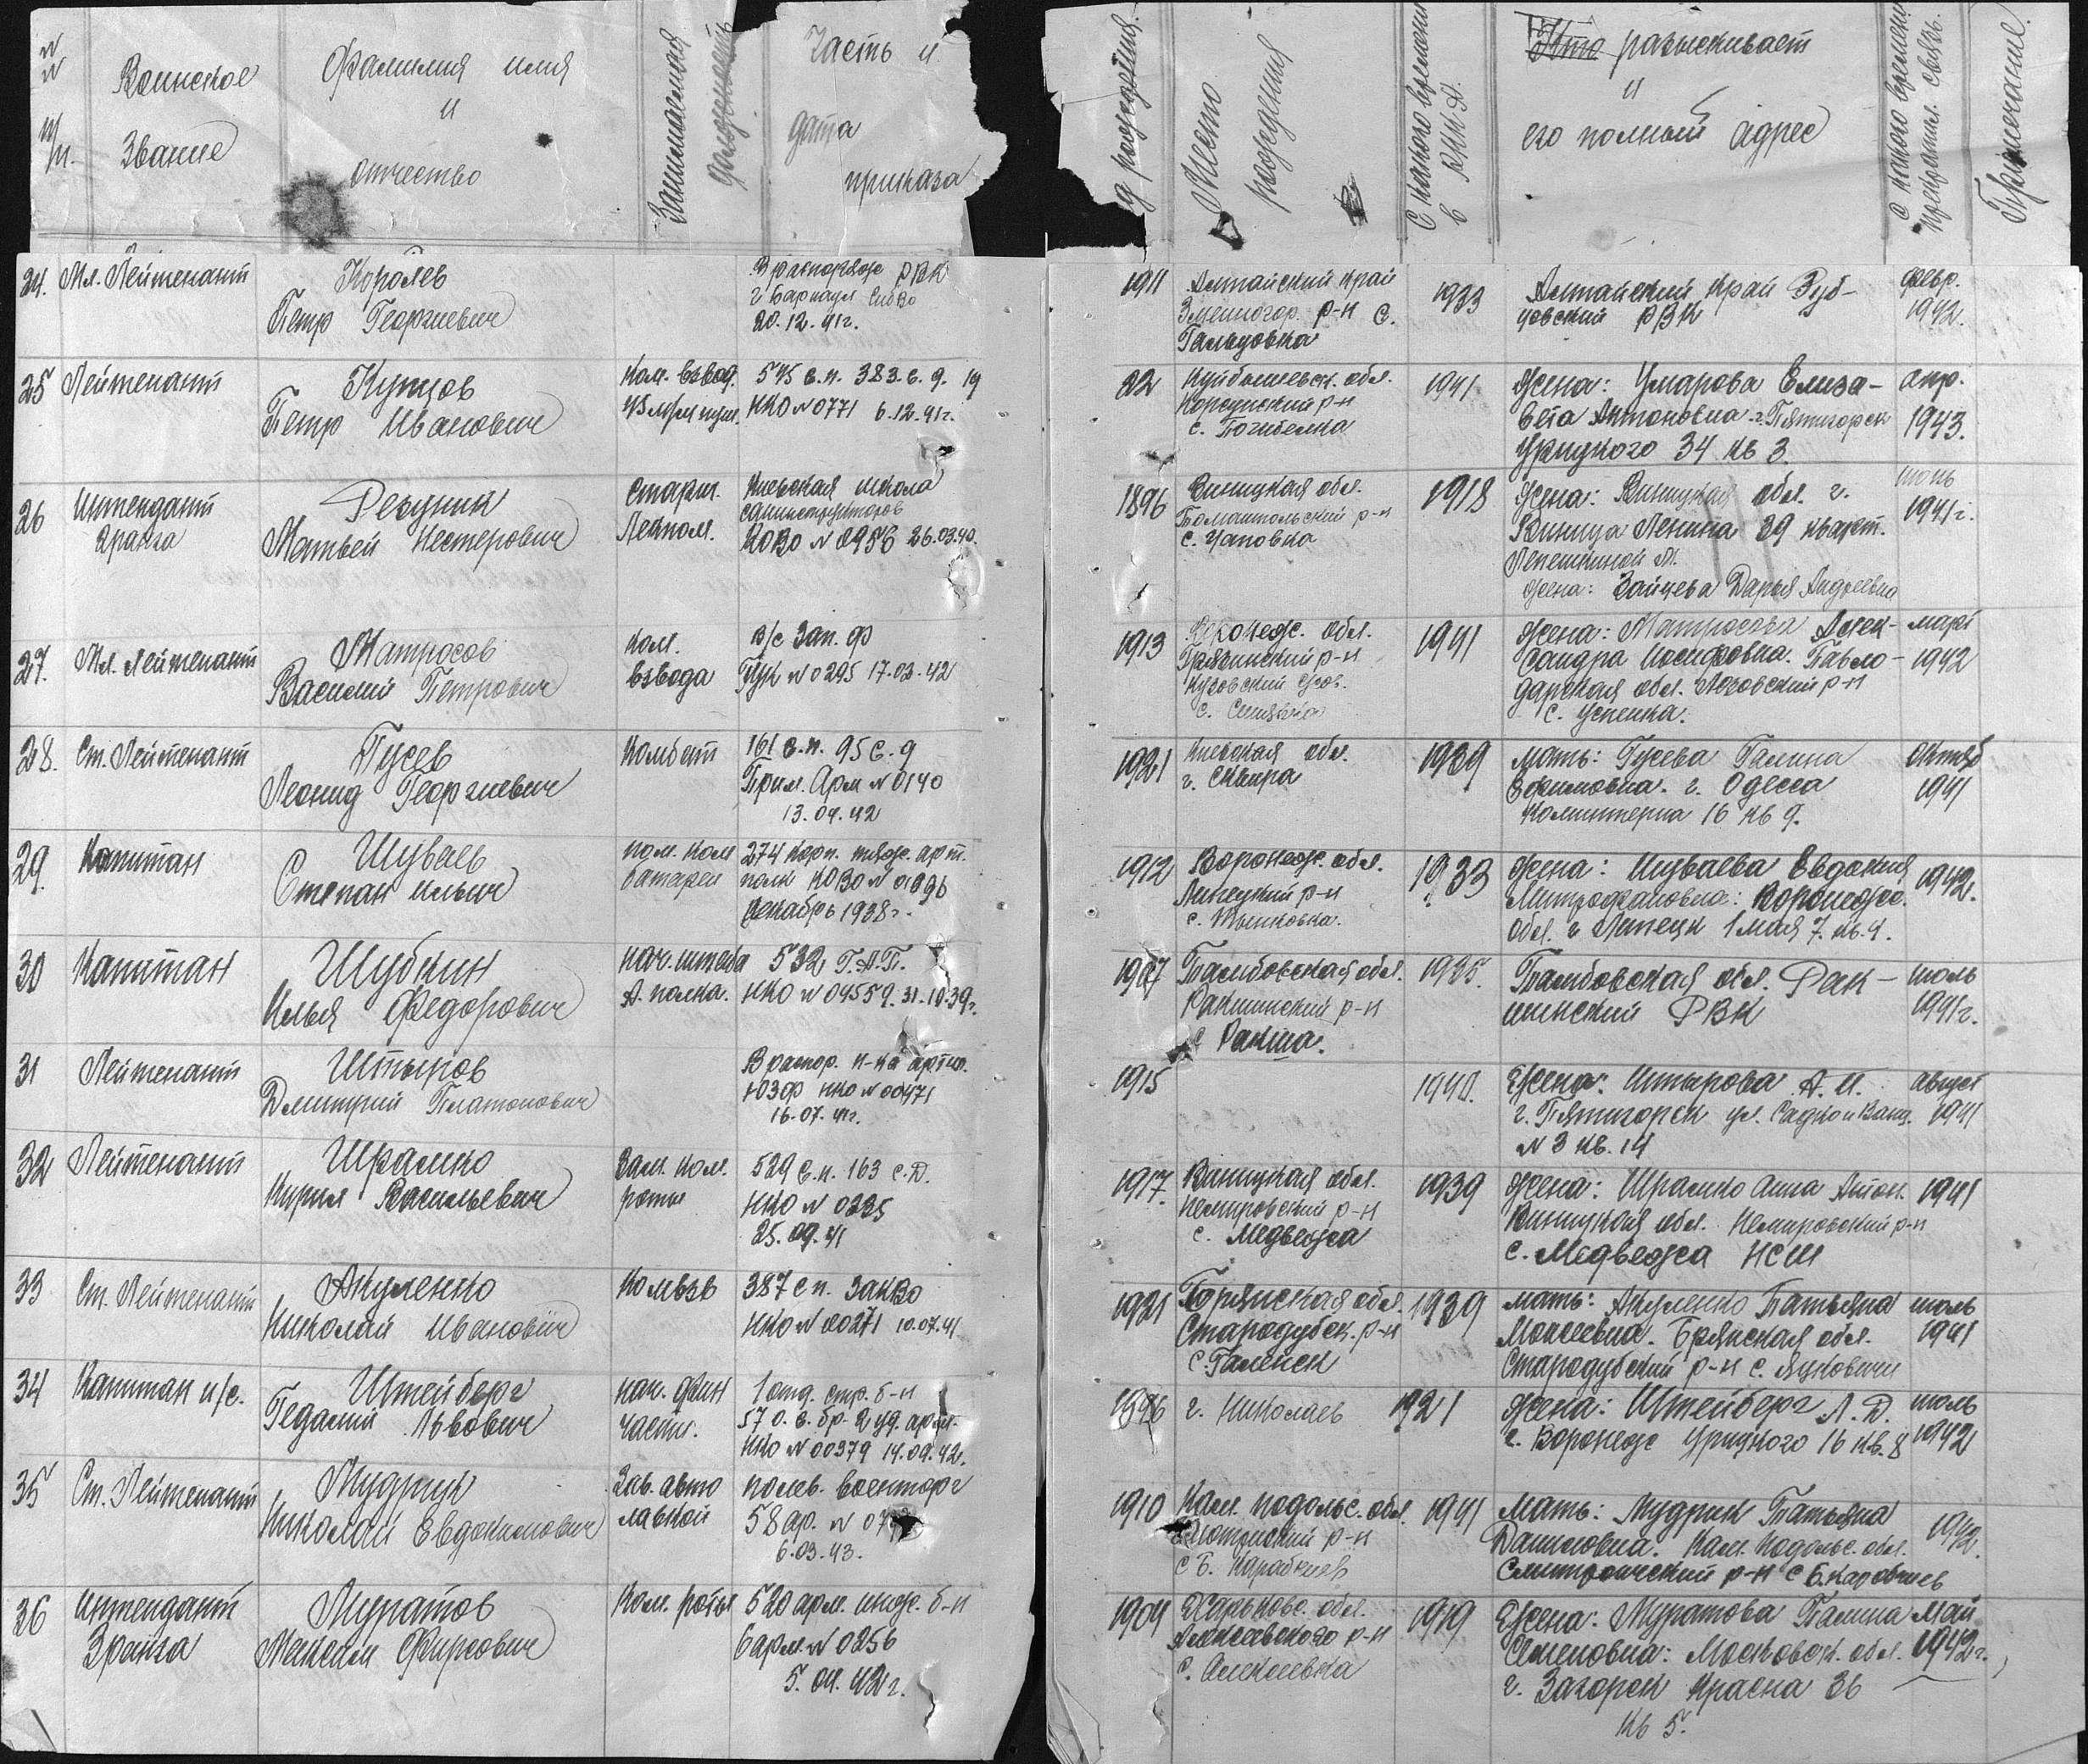 №№ п/п.
Воинское звание
Фамилия имя и отчество
Занимаемая должность
Часть и дата приказа
рождения.
Место рождения
С какого времени в
разыскивает и его полный адрес
С какого времени прекратил. связь.
Примечание.
24. Мл. Лейтенант
Королев
Петр Георгиевич
РВК
г Барнаул СибВо
20.12.41г.
1911
Алтайский край
Змеиногор. р-н с.
1933
Алтайский край
РВК
февр.
1942г.
25 Лейтенант
Купцов
Петр Иванович
Ком. взвод.
575 с.п. 383 с.д.
НКО №0771 6.12.41г.
22
Куйбышевск. обл.
р-н
с. Погибелка
1941
Жена: Умарова Елиза-
вета Антоновна г. Пятигорск
Урицкого 34 кв 3.
апр.
1943.
26 Интендант
2 ранга
Резник
Матвей Нестерович
Старш.
Лекпом.
Киевская школа
санинструкторов
КОВО № 26.03.40.
1896
Виницкая обл.
р-н
с.
1918
Жена: Виницкая обл. г.
Виница Ленина 29 кварт.
Лепешкиной М.
Жена: Зайцева Дарья Андреевна
июнь
1941г.
27. Мл. Лейтенант
Матросов
Василий Петрович
Ком.
взвода
в/с Зап. Ф
№ 0295 17.03.42
1913
Воронеж. обл.
р-н
с.
1941
Жена: Матросова Алек-
сандра Иосифовна. Павло-
дарская обл. Лозовский р-н
с. Успенка.
март
1942
28. Ст. Лейтенант
Гусев
Леонид Георгиевич
Комбат
161 с.п. 95 с.д
Прим. Арм № 0140
13.04.42
1921
Киевская обл.
г. Сквира
1939
Мать: Гусева Галина
Ефимовна. г. Одесса
Коминтерна 16 кв 9.
Октяб
1941
29. Капитан
Шуваев
Степан Ильич
пом. ком
батареи
274 корп. тяж. арт.
полк КОВО №
Декабрь 1938г.
1912
Воронеж. обл.
Липецкий р-н
с.
1933
Жена: Шуваева Евдокия
Митрофановна: Воронеж.
обл. г Липецк 1 мая 7. кв.4.
1942г.
30 Капитан
Шубкин
Илья Федорович
нач. штаба
А. полка.
532 Г.А.П.
НКО № 04559. 31.10.39г.
1907
Тамбовская обл.
Ракшинский р-н
с Ракша.
1935.
Тамбовская обл. Рак-
шинский РВК
июль
1941г.
31 Лейтенант
Штыров
Дмитрий Платонович
В распор. н-ка артил.
ЮЗФ НКО № 00471
16.07.41г.
1915
1940.
Жена: Штырова А.И.
г. Пятигорск ул. Сакко и Ванц.
№ 3 кв. 14
август
1941
32 Лейтенант
Шрамко
Кирил Васильевич
Зам. ком.
роты
529 с.п. 163 с.Д.
НКО № 0225
25.09.41
1917.
Виницкая обл.
Немировский р-н
с. Медвежа
1939
Жена: Шрамко Анна Антон.
Виницкая обл. Немировский р-н
с. Медвежа НСШ
1941
33 Ст. Лейтенант
Акуленко
Николай Иванович
Комвзв
387 с п. ЗакВо
НКО № 00271 10.07.41
1921
Брянская обл.
Стародубск. р-н
с. Галенск
1939
мать: Акуленко Татьяна
Моисеевна. Брянская обл.
Стародубский р-н с. Яцковичи
июль
1941
34 Капитан и/с.
Штейберг
Гедалий Львович
нач. фин
части.
1 отд. стр. б-н
57 о. с. бр. 2 уд. арм.
НКО № 00379 14.09.42.
1896
г. Николаев
1921
Жена: Штейберг Л.Д.
г. Воронеж Урицкого 16 кв. 8
июль
1942
35 Ст. Лейтенант
Мудрик
Николай Евдокимович
Зав. авто
лавкой
полев. военторг
58 ар. №
6.03.43.
1910
Кам. подольс. обл.
р-н
с Б. Карабчиев
1941
Мать: Мудрик Татьяна
Даниловна. Кам. Подольс. обл.
р-н с Б. Карабчиев
1942.
36 Интендант
3 ранга
Муратов
Максим Фирсович
Ком. роты
520 арм. инж. б-н
6 арм. № 0256
5.04.42г.
1904
Харьковс. обл.
Алексеевского р-н
с. Алексеевка
1919
Жена: Муратова Галина
Семеновна: Московск. обл.
г. Загорск Красна 36
кв 5.
май
1942г.